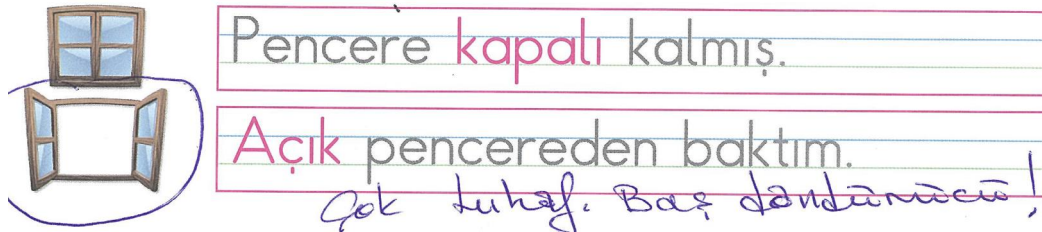 Pencere kapalı kalmış.
Açık pencereden baktım.
Çok tuhaf. Baş döndürücü!